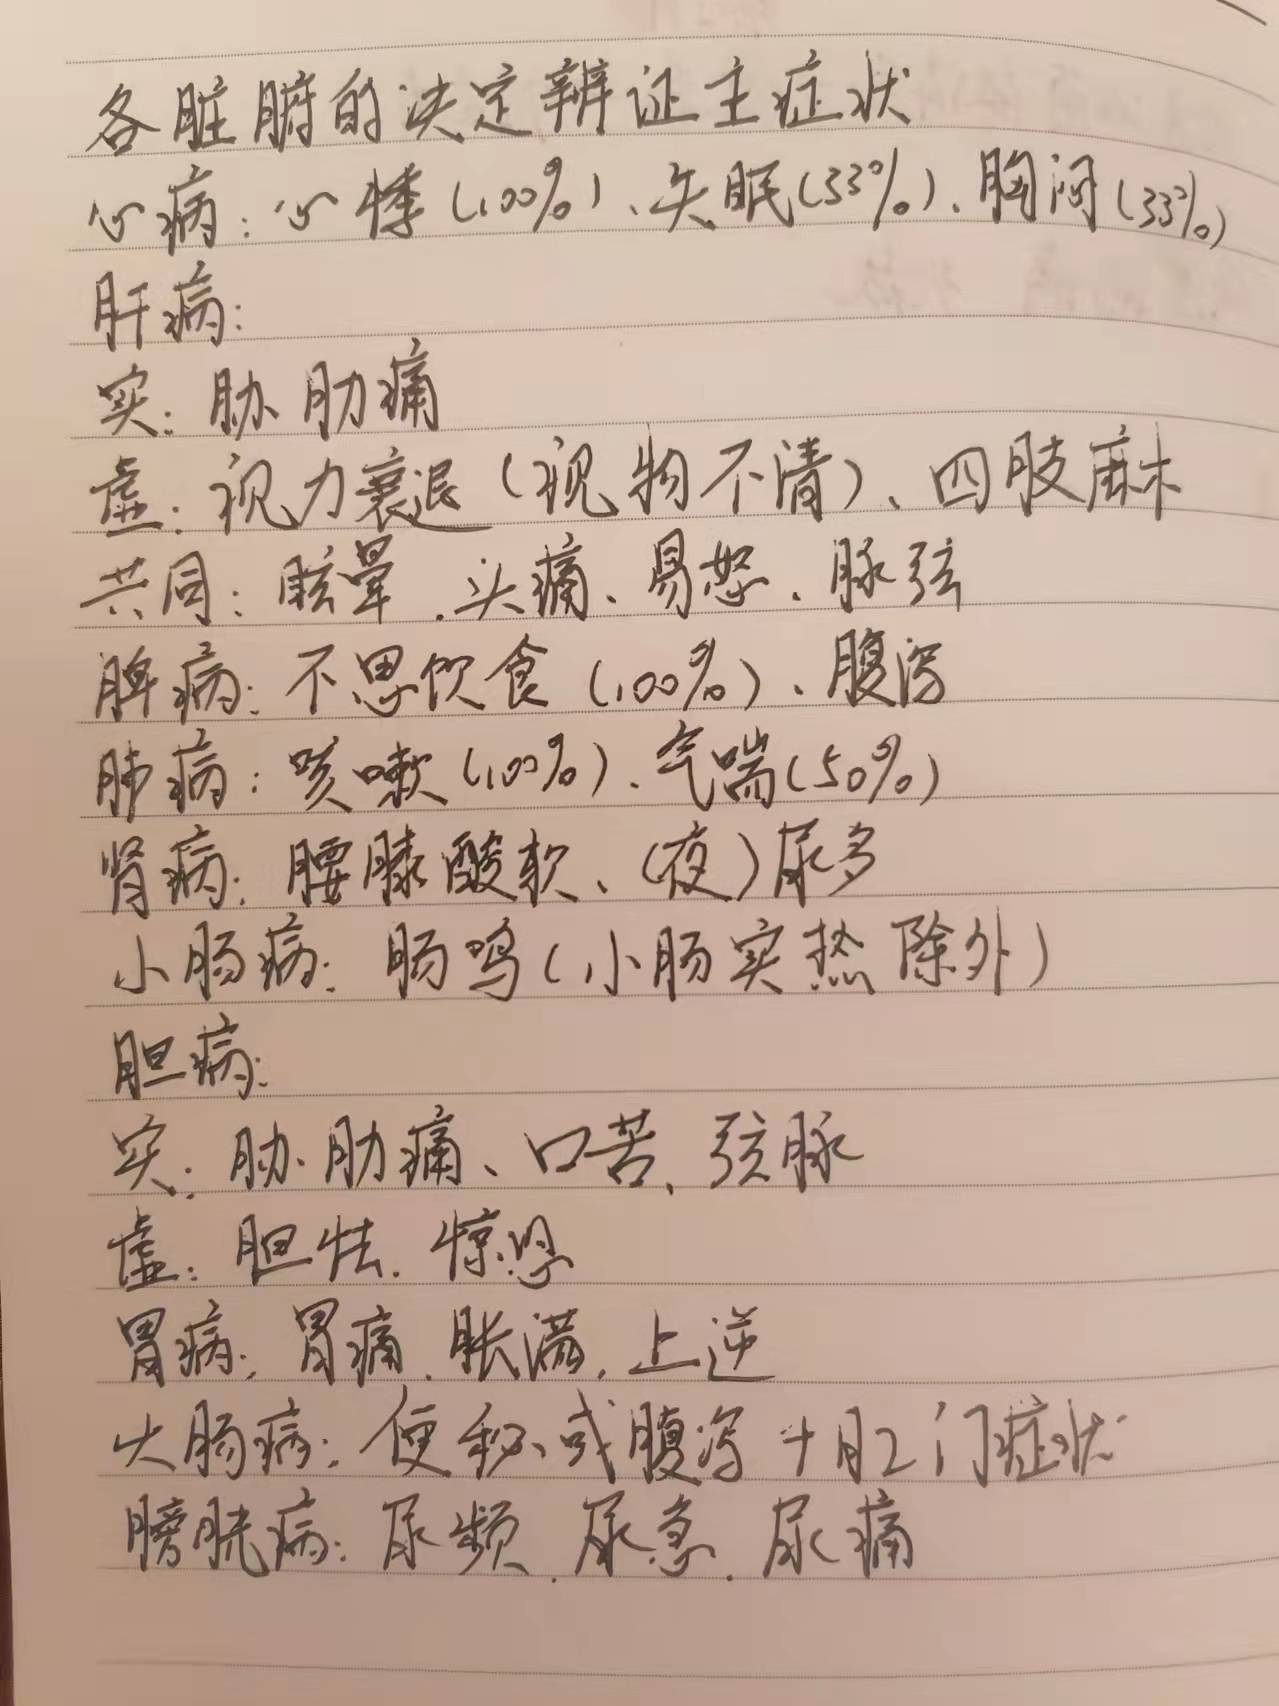 各脏腑的决定辨证主症状
心病：心悸(100%)、失眠(33%)、胸闷(33%)
肝病：
实：胁肋痛
虚：视力衰退(视物不清)、四肢麻木
共同：眩晕、头痛、易怒、脉弦
脾病：不思饮食(100%)、腹泻
肺病：咳嗽(100%)、气喘(50%)
肾病：腰膝酸软、(夜)尿多
小肠病：肠鸣(小肠实热除外)
胆病：
实：胁肋痛、口苦、弦脉
虚：胆怯、惊恐
胃病：胃痛、胀满、上逆
大肠病：便秘或腹泻+肛门症状
膀胱病：尿频、尿急、尿痛